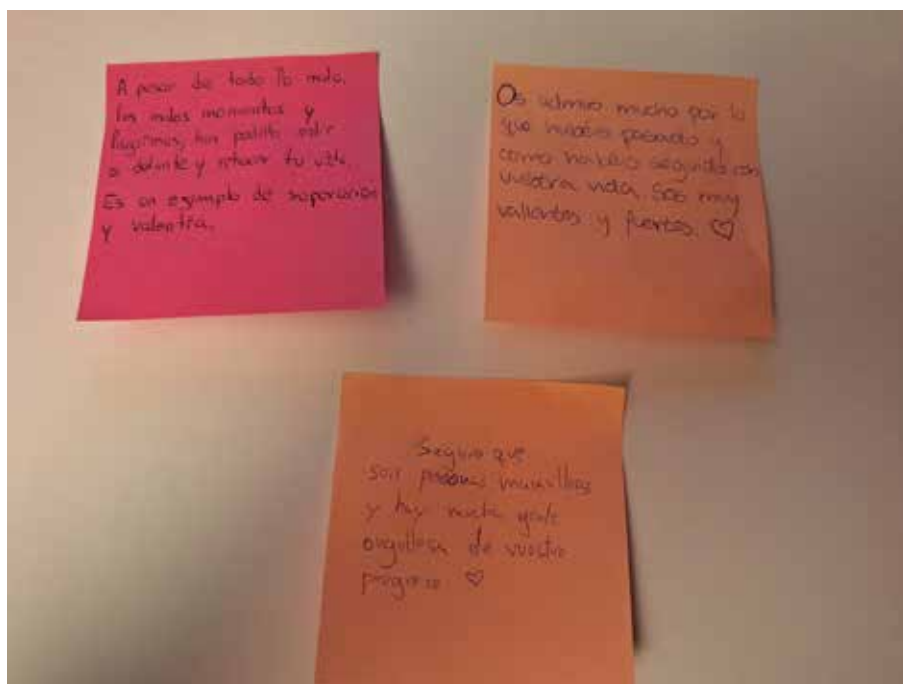 A pesar de todo lo malo,
los malos momentos y
lagrimas, has podido salir
a delante y rehacer tu vida.
Es un ejemplo de superación
y valentía.
Os admiro mucho por lo
que habéis pasado y
como habéis seguido con
vuestra vida. Sois muy
valientes y fuertes. ♡
Seguro que
sois personas maravillosas
y hay mucha gente
orgullosa de vuestro
progreso ♡